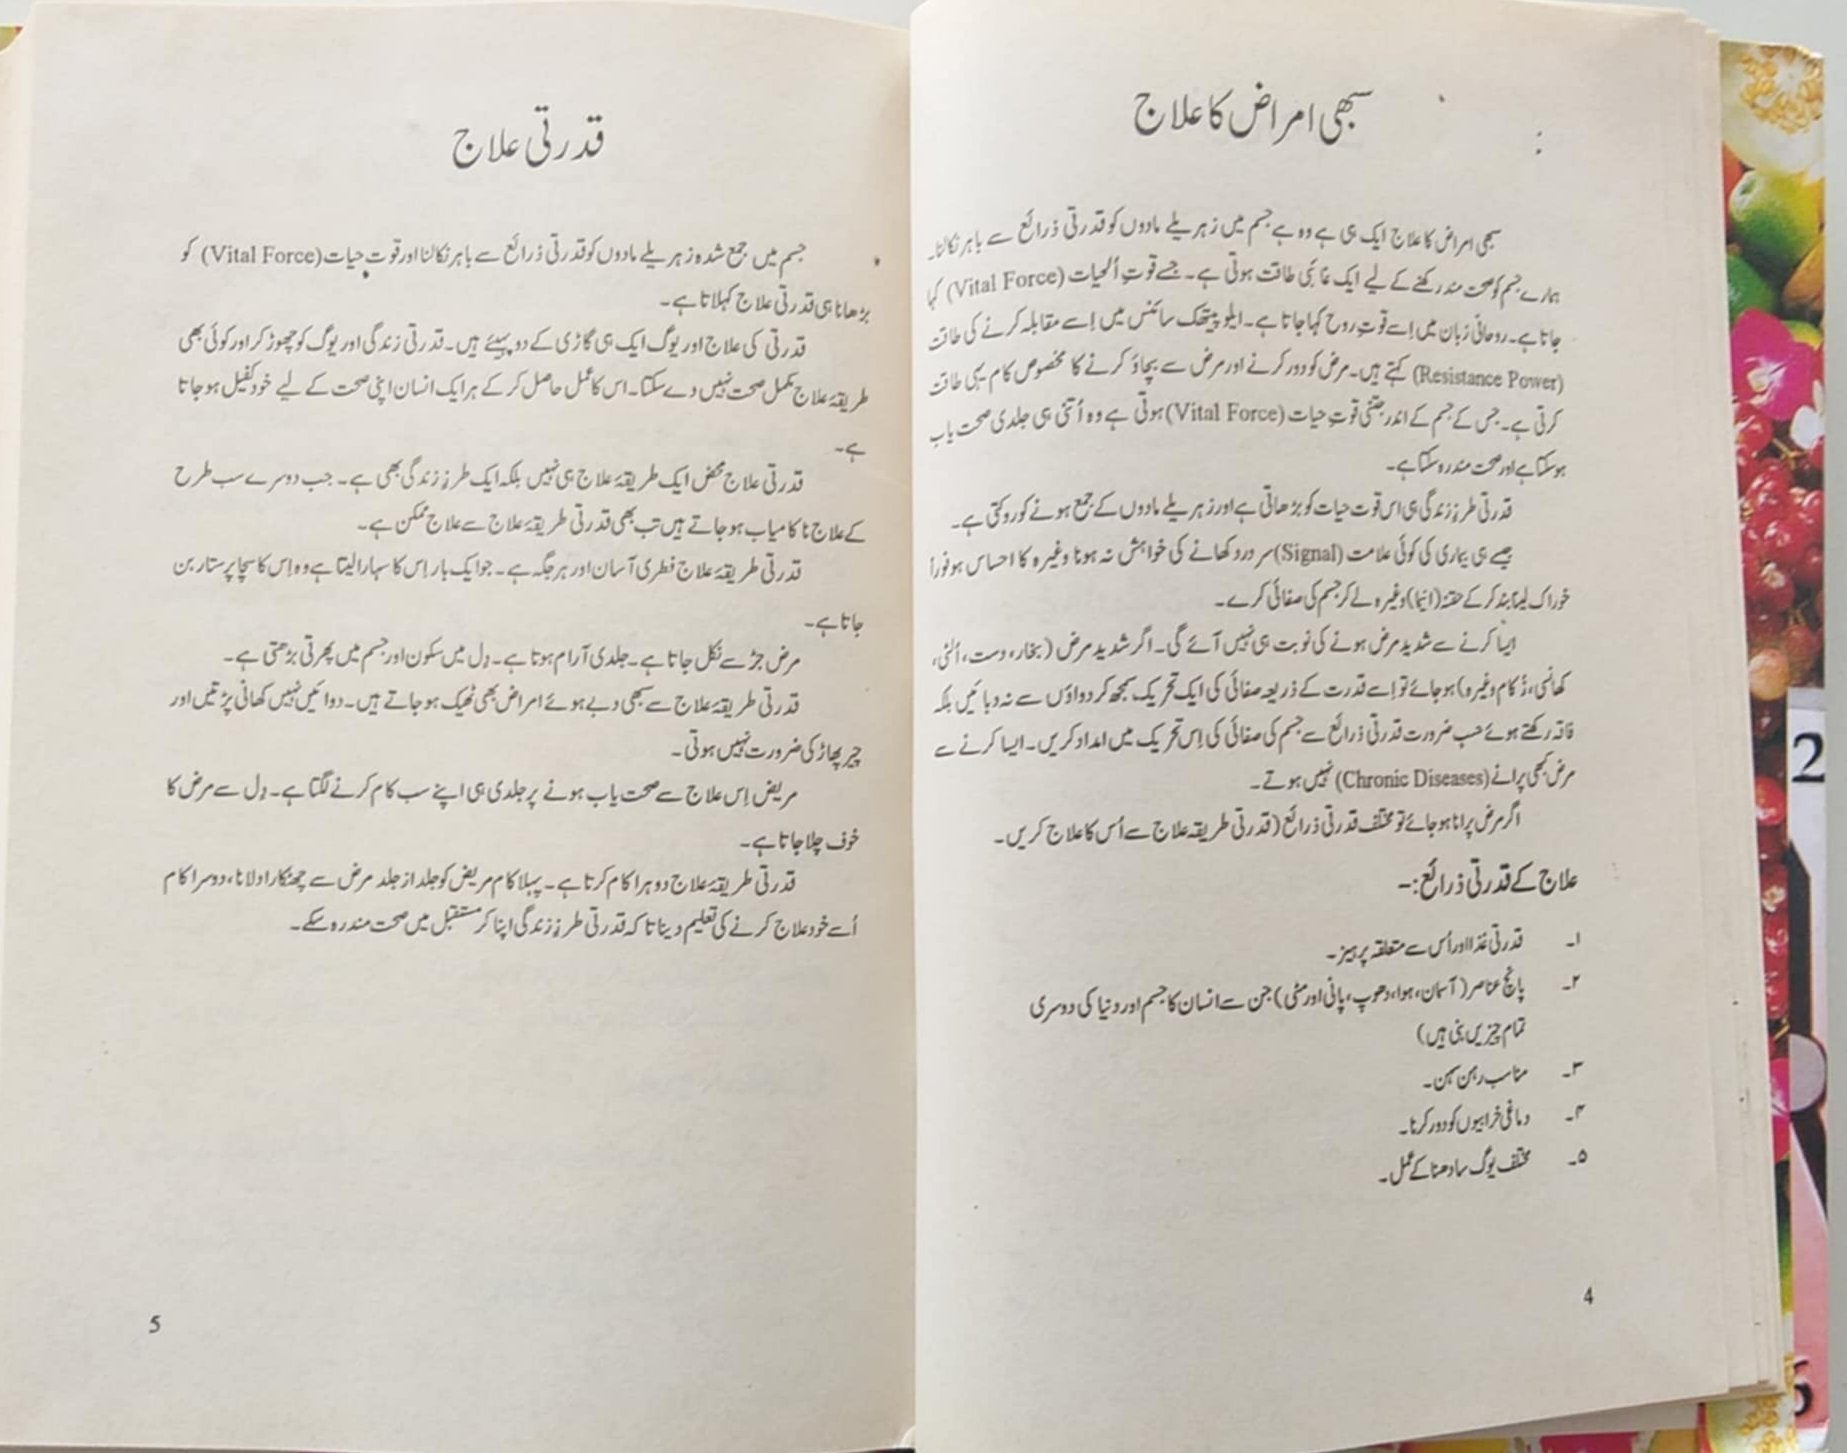 سبھی امراض کا علاج
سبھی امراض کا علاج ایک ہی ہے وہ ہے جسم میں زہریلے مادوں کو قدرتی ذرائع سے باہر نکالنا۔
ہمارے جسم کو صحت مند رکھنے کے لیے ایک غائبی طاقت ہوتی ہے۔ جسے قوتِ اُلحیات (Vital Force) کہا
جاتا ہے۔ روحانی زبان میں اِسے قوتِ روح کہا جاتا ہے۔ ایلوپیتھک سائنس میں اِسے مقابلہ کرنے کی طاقت
(Resistance Power) کہتے ہیں۔ مرض کو دور کرنے اور مرض سے بچاؤ کرنے کا مخصوص کام یہی طاقت
کرتی ہے۔ جس کے جسم کے اندر جتنی قوتِ حیات (Vital Force) ہوتی ہے وہ اُتنی ہی جلدی صحت یاب
ہوسکتا ہے اور صحت مند رہ سکتا ہے۔
قدرتی طرزِ زندگی ہی اس قوت حیات کو بڑھاتی ہے اور زہریلے مادوں کے جمع ہونے کو روکتی ہے۔
جیسے ہی بیماری کی کوئی علامت (Signal) سر درد کھانے کی خواہش نہ ہونا وغیرہ کا احساس ہو فوراً
خوراک لینا بند کر کے حقنہ (انیما) وغیرہ لے کر جسم کی صفائی کرے۔
ایسا کرنے سے شدید مرض ہونے کی نوبت ہی نہیں آئے گی۔ اگر شدید مرض (بخار، دست، اُلٹی،
کھانسی، زُکام وغیرہ) ہوجائے تو اِسے قدرت کے ذریعہ صفائی کی ایک تحریک سمجھ کر دواؤں سے نہ دبائیں بلکہ
فاقہ رکھتے ہوئے حسب ضرورت قدرتی ذرائع سے جسم کی صفائی کی اِس تحریک میں امداد کریں۔ ایسا کرنے سے
مرض کبھی پرانے (Chronic Diseases) نہیں ہوتے۔
اگر مرض پرانا ہوجائے تو مختلف قدرتی ذرائع (قدرتی طریقہ علاج سے اُس کا علاج کریں۔
علاج کے قدرتی ذرائع:-
۱۔ قدرتی غذا اور اُس سے متعلقہ پرہیز۔
۲۔ پانچ عناصر (آسمان، ہوا، دھوپ، پانی اور مٹی) جن سے انسان کا جسم اور دنیا کی دوسری
تمام چیزیں بنی ہیں)
۳۔ مناسب رہن سہن۔
۴۔ دماغی خرابیوں کو دور کرنا۔
۵۔ مختلف یوگ سادھنا کے عمل۔
4
قدرتی علاج
جسم میں جمع شدہ زہریلے مادوں کو قدرتی ذرائع سے باہر نکالنا اور قوتِ حیات (Vital Force) کو
بڑھانا ہی قدرتی علاج کہلاتا ہے۔
قدرتی کی علاج اور یوگ ایک ہی گاڑی کے دو پہیئے ہیں۔ قدرتی زندگی اور یوگ کو چھوڑ کر اور کوئی بھی
طریقۂ علاج مکمل صحت نہیں دے سکتا۔ اس کا عمل حاصل کر کے ہر ایک انسان اپنی صحت کے لیے خود کفیل ہوجاتا
ہے۔
قدرتی علاج محض ایک طریقۂ علاج ہی نہیں بلکہ ایک طرزِ زندگی بھی ہے۔ جب دوسرے سب طرح
کے علاج ناکامیاب ہوجاتے ہیں تب بھی قدرتی طریقۂ علاج سے علاج ممکن ہے۔
قدرتی طریقۂ علاج فطری آسان اور ہر جگہ ہے۔ جو ایک بار اِس کا سہارا لیتا ہے وہ اِس کا سچا پرستار بن
جاتا ہے۔
مرض جڑ سے نکل جاتا ہے۔ جلدی آرام ہوتا ہے۔ دِل میں سکون اور جسم میں پھرتی بڑھتی ہے۔
قدرتی طریقۂ علاج سے سبھی دبے ہوئے امراض بھی ٹھیک ہوجاتے ہیں۔ دوائیں نہیں کھانی پڑتیں اور
چیر پھاڑ کی ضرورت نہیں ہوتی۔
مریض اِس علاج سے صحت یاب ہونے پر جلدی ہی اپنے سب کام کرنے لگتا ہے۔ دِل سے مرض کا
خوف چلا جاتا ہے۔
قدرتی طریقۂ علاج دوہرا کام کرتا ہے۔ پہلا کام مریض کو جلد از جلد مرض سے چھٹکارا دلانا، دوسرا کام
اُسے خود علاج کرنے کی تعلیم دینا تاکہ قدرتی طرزِ زندگی اپنا کر مستقبل میں صحت مند رہ سکے۔
5
2